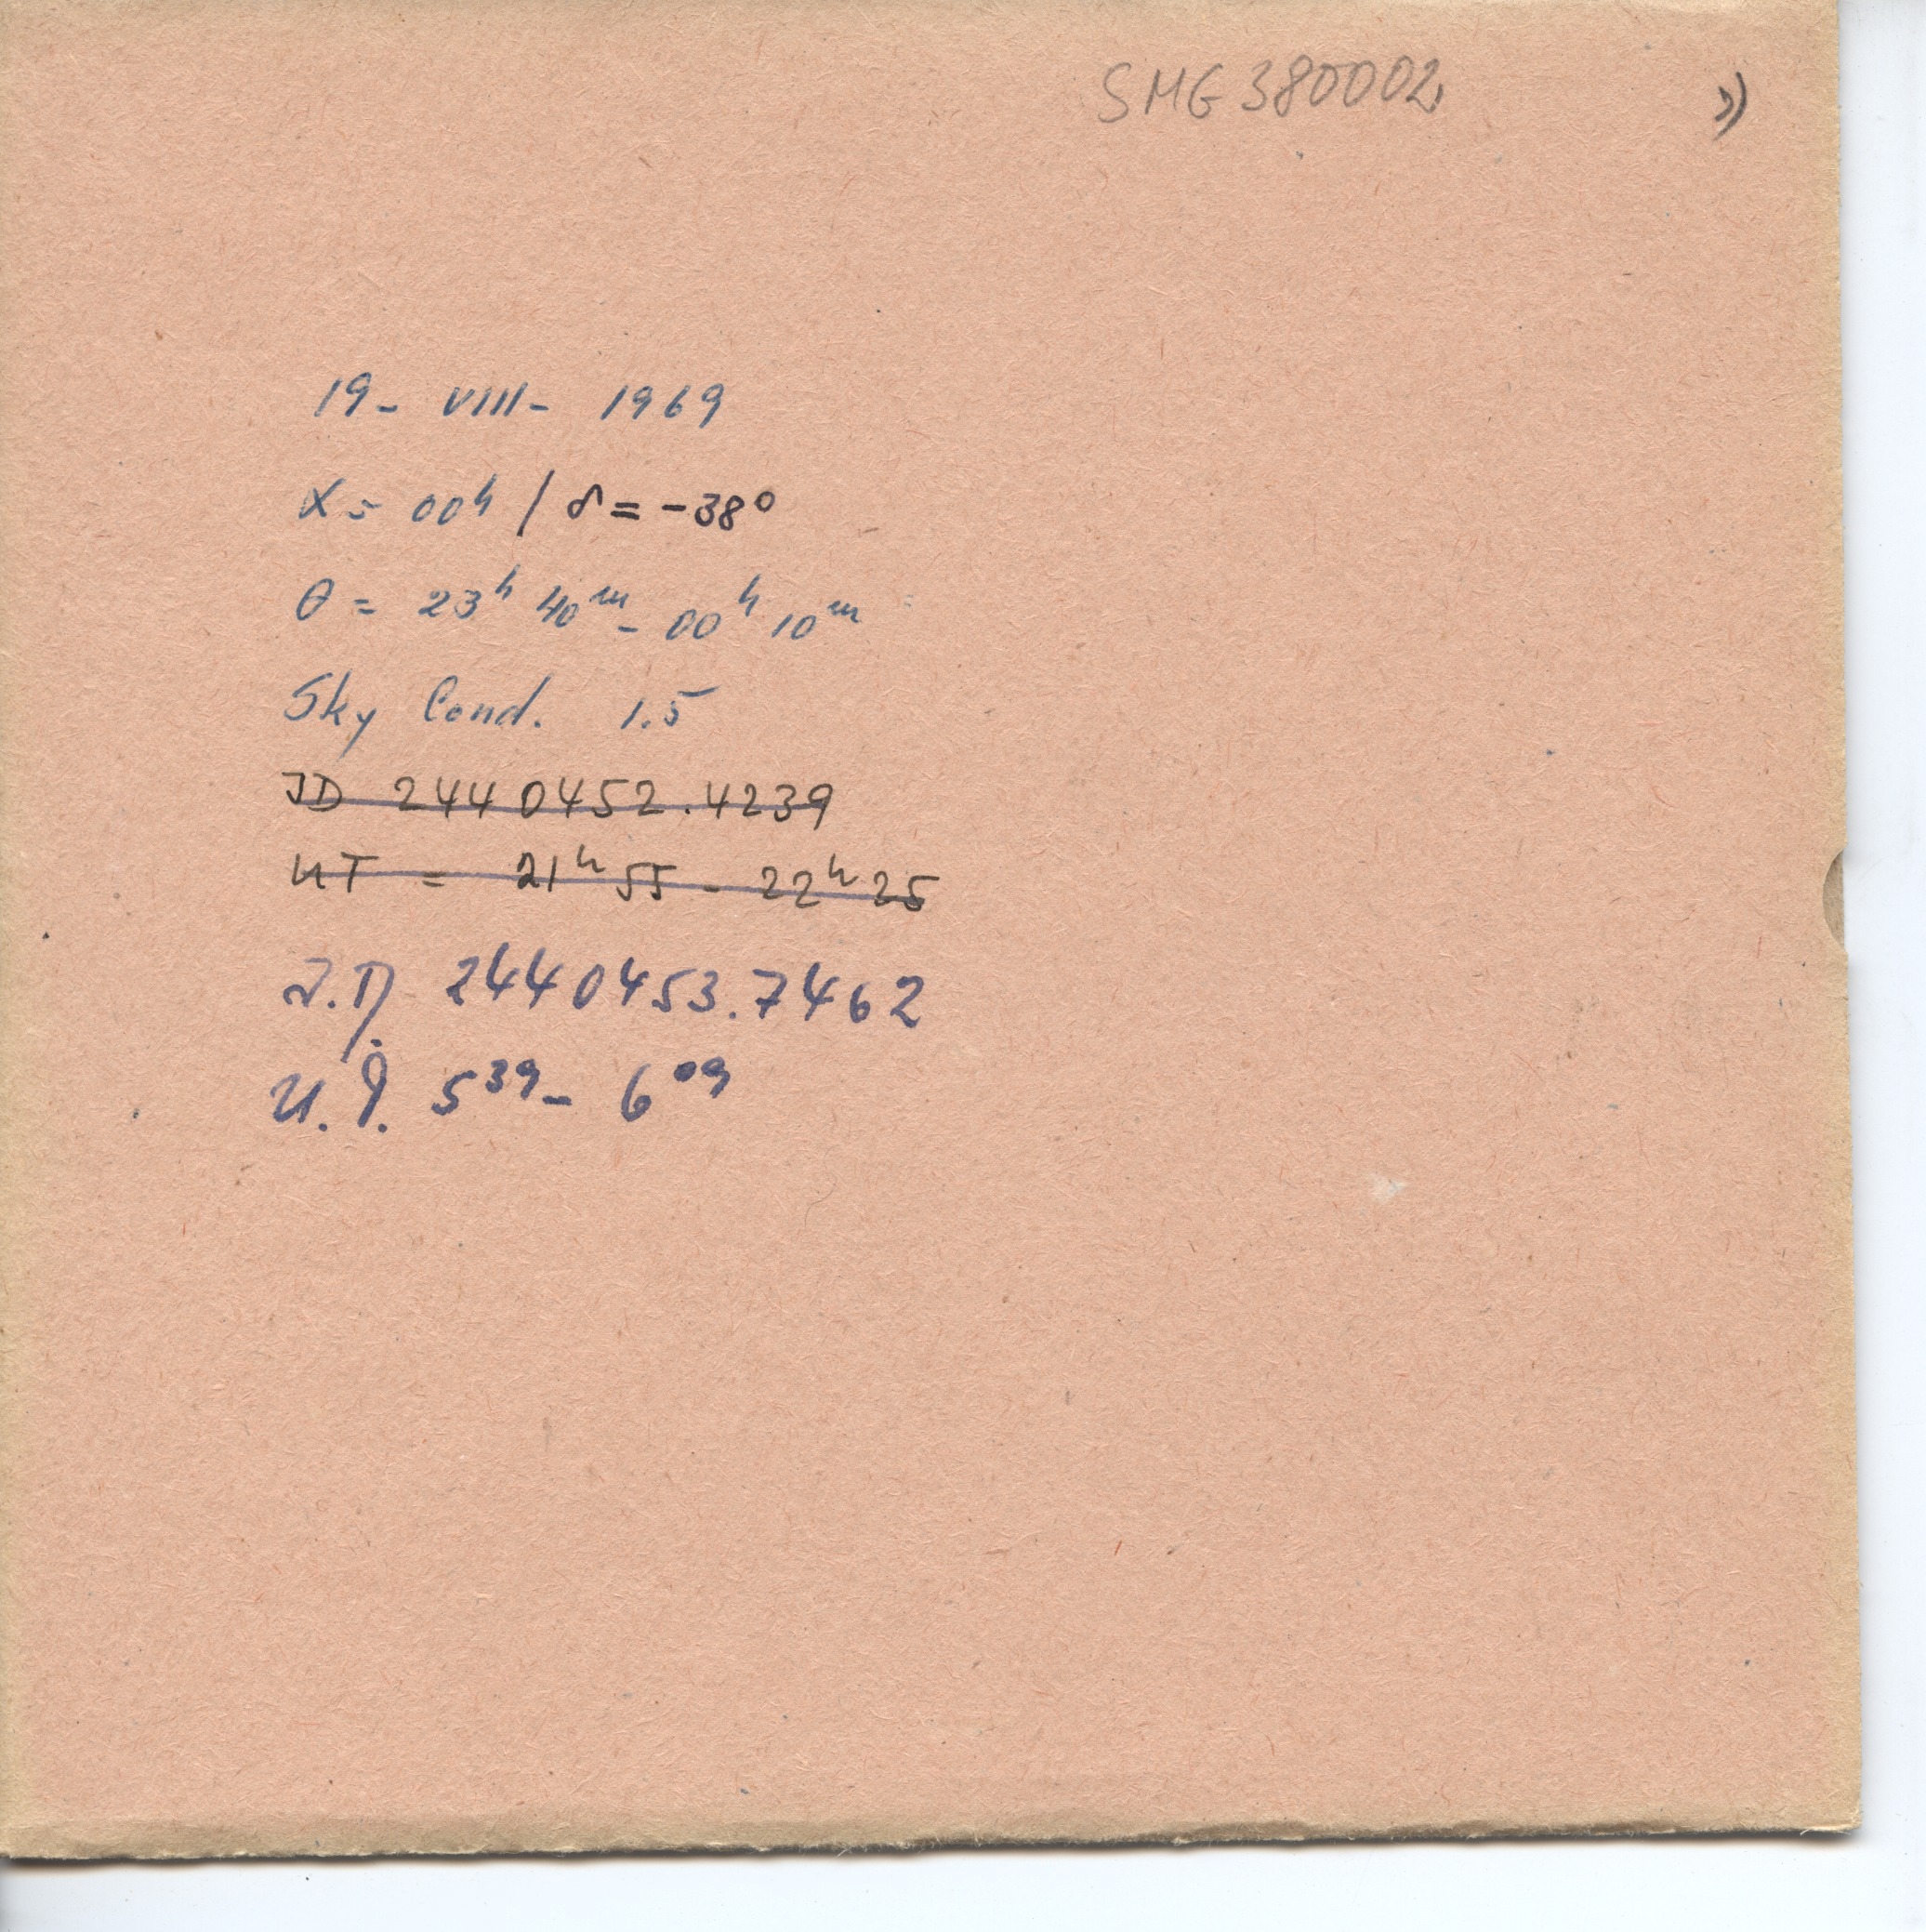 SMG 380002
19- VIII- 1969
α = 00ʰ / δ = -38°
θ = 23ʰ 40ᵐ - 00ʰ 10ᵐ
Sky Cond. 1.5
JD 2440452.4239
UT = 21ʰ55 - 22ʰ25
J.D. 2440453.7462
U.T. 5³⁹ - 6⁰⁹